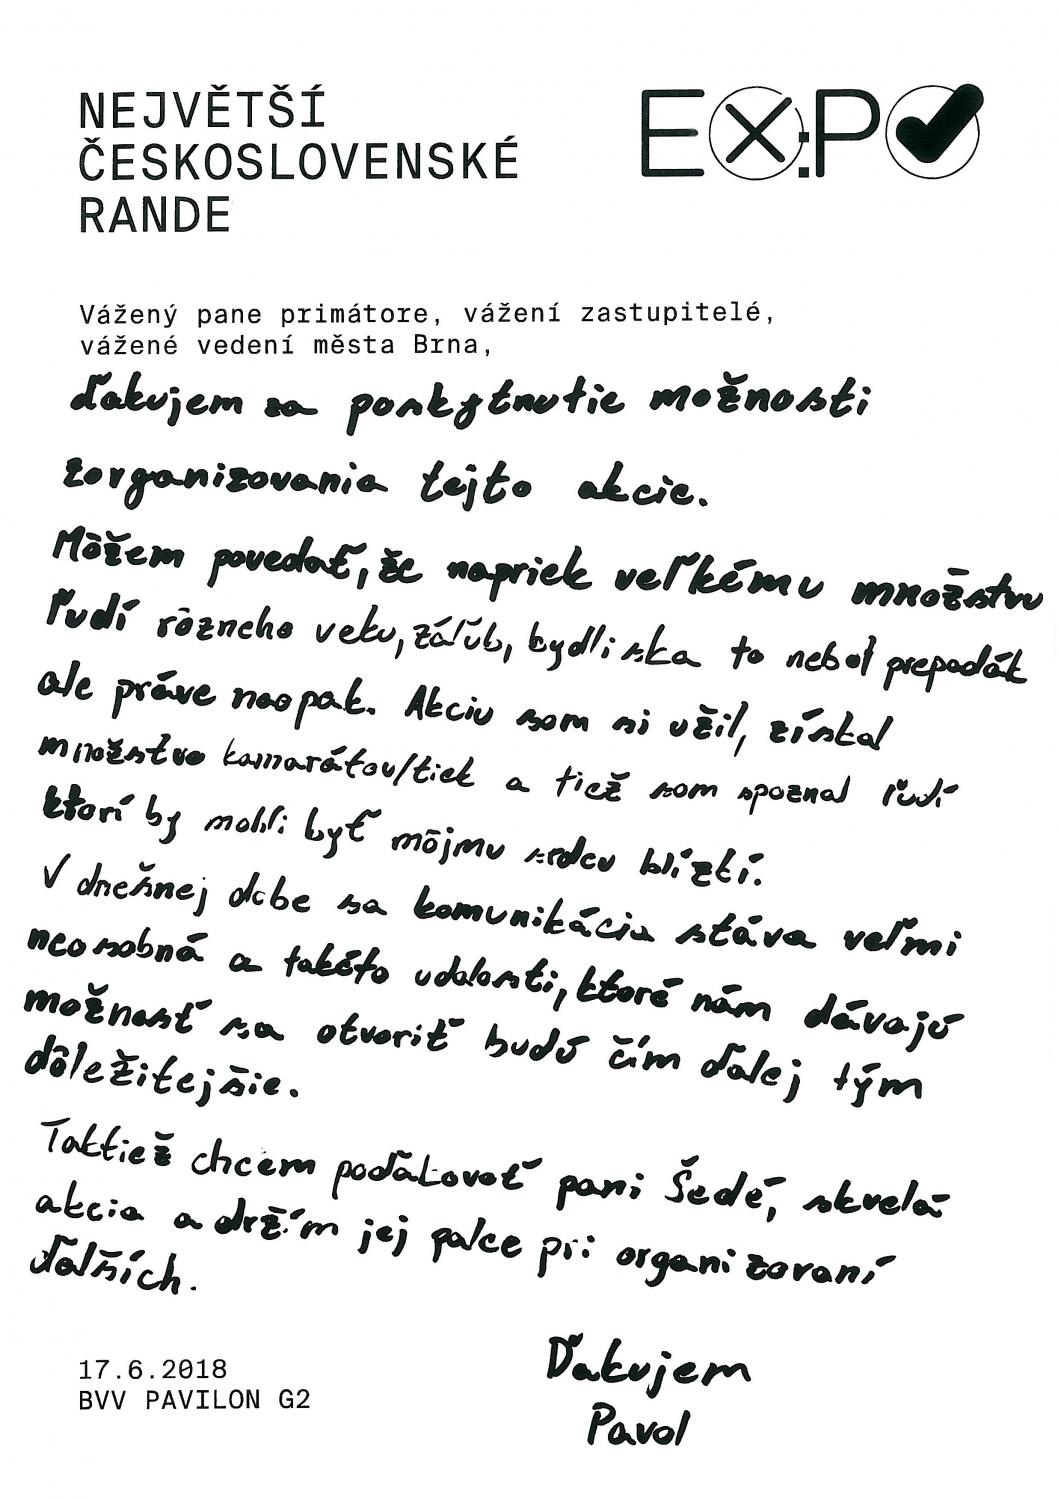 NEJVĚTŠÍ
ČESKOSLOVENSKÉ
RANDE
EX:PO
Vážený pane primátore, vážení zastupitelé,
vážené vedení města Brna,
ďakujem za poskytnutie možnosti
zorganizovania tejto akcie.
Môžem povedať, že napriek veľkému množstvu
ľudí rôzneho veku, záľub, bydliska to nebol prepadák
ale práve naopak. Akciu som si užil, získal
množstvo kamarátov/tiek a tiež som spoznal ľudí
ktorí by mohli byť môjmu srdcu blízki.
V dnešnej dobe sa komunikácia stáva veľmi
neosobná a takéto udalosti, ktoré nám dávajú
možnosť sa otvoriť budú čím ďalej tým
dôležitejšie.
Taktiež chcem poďakovať pani Šedé, skvelá
akcia a držím jej palce pri organizovaní
ďalších.
Ďakujem
Pavol
17.6.2018
BVV PAVILON G2